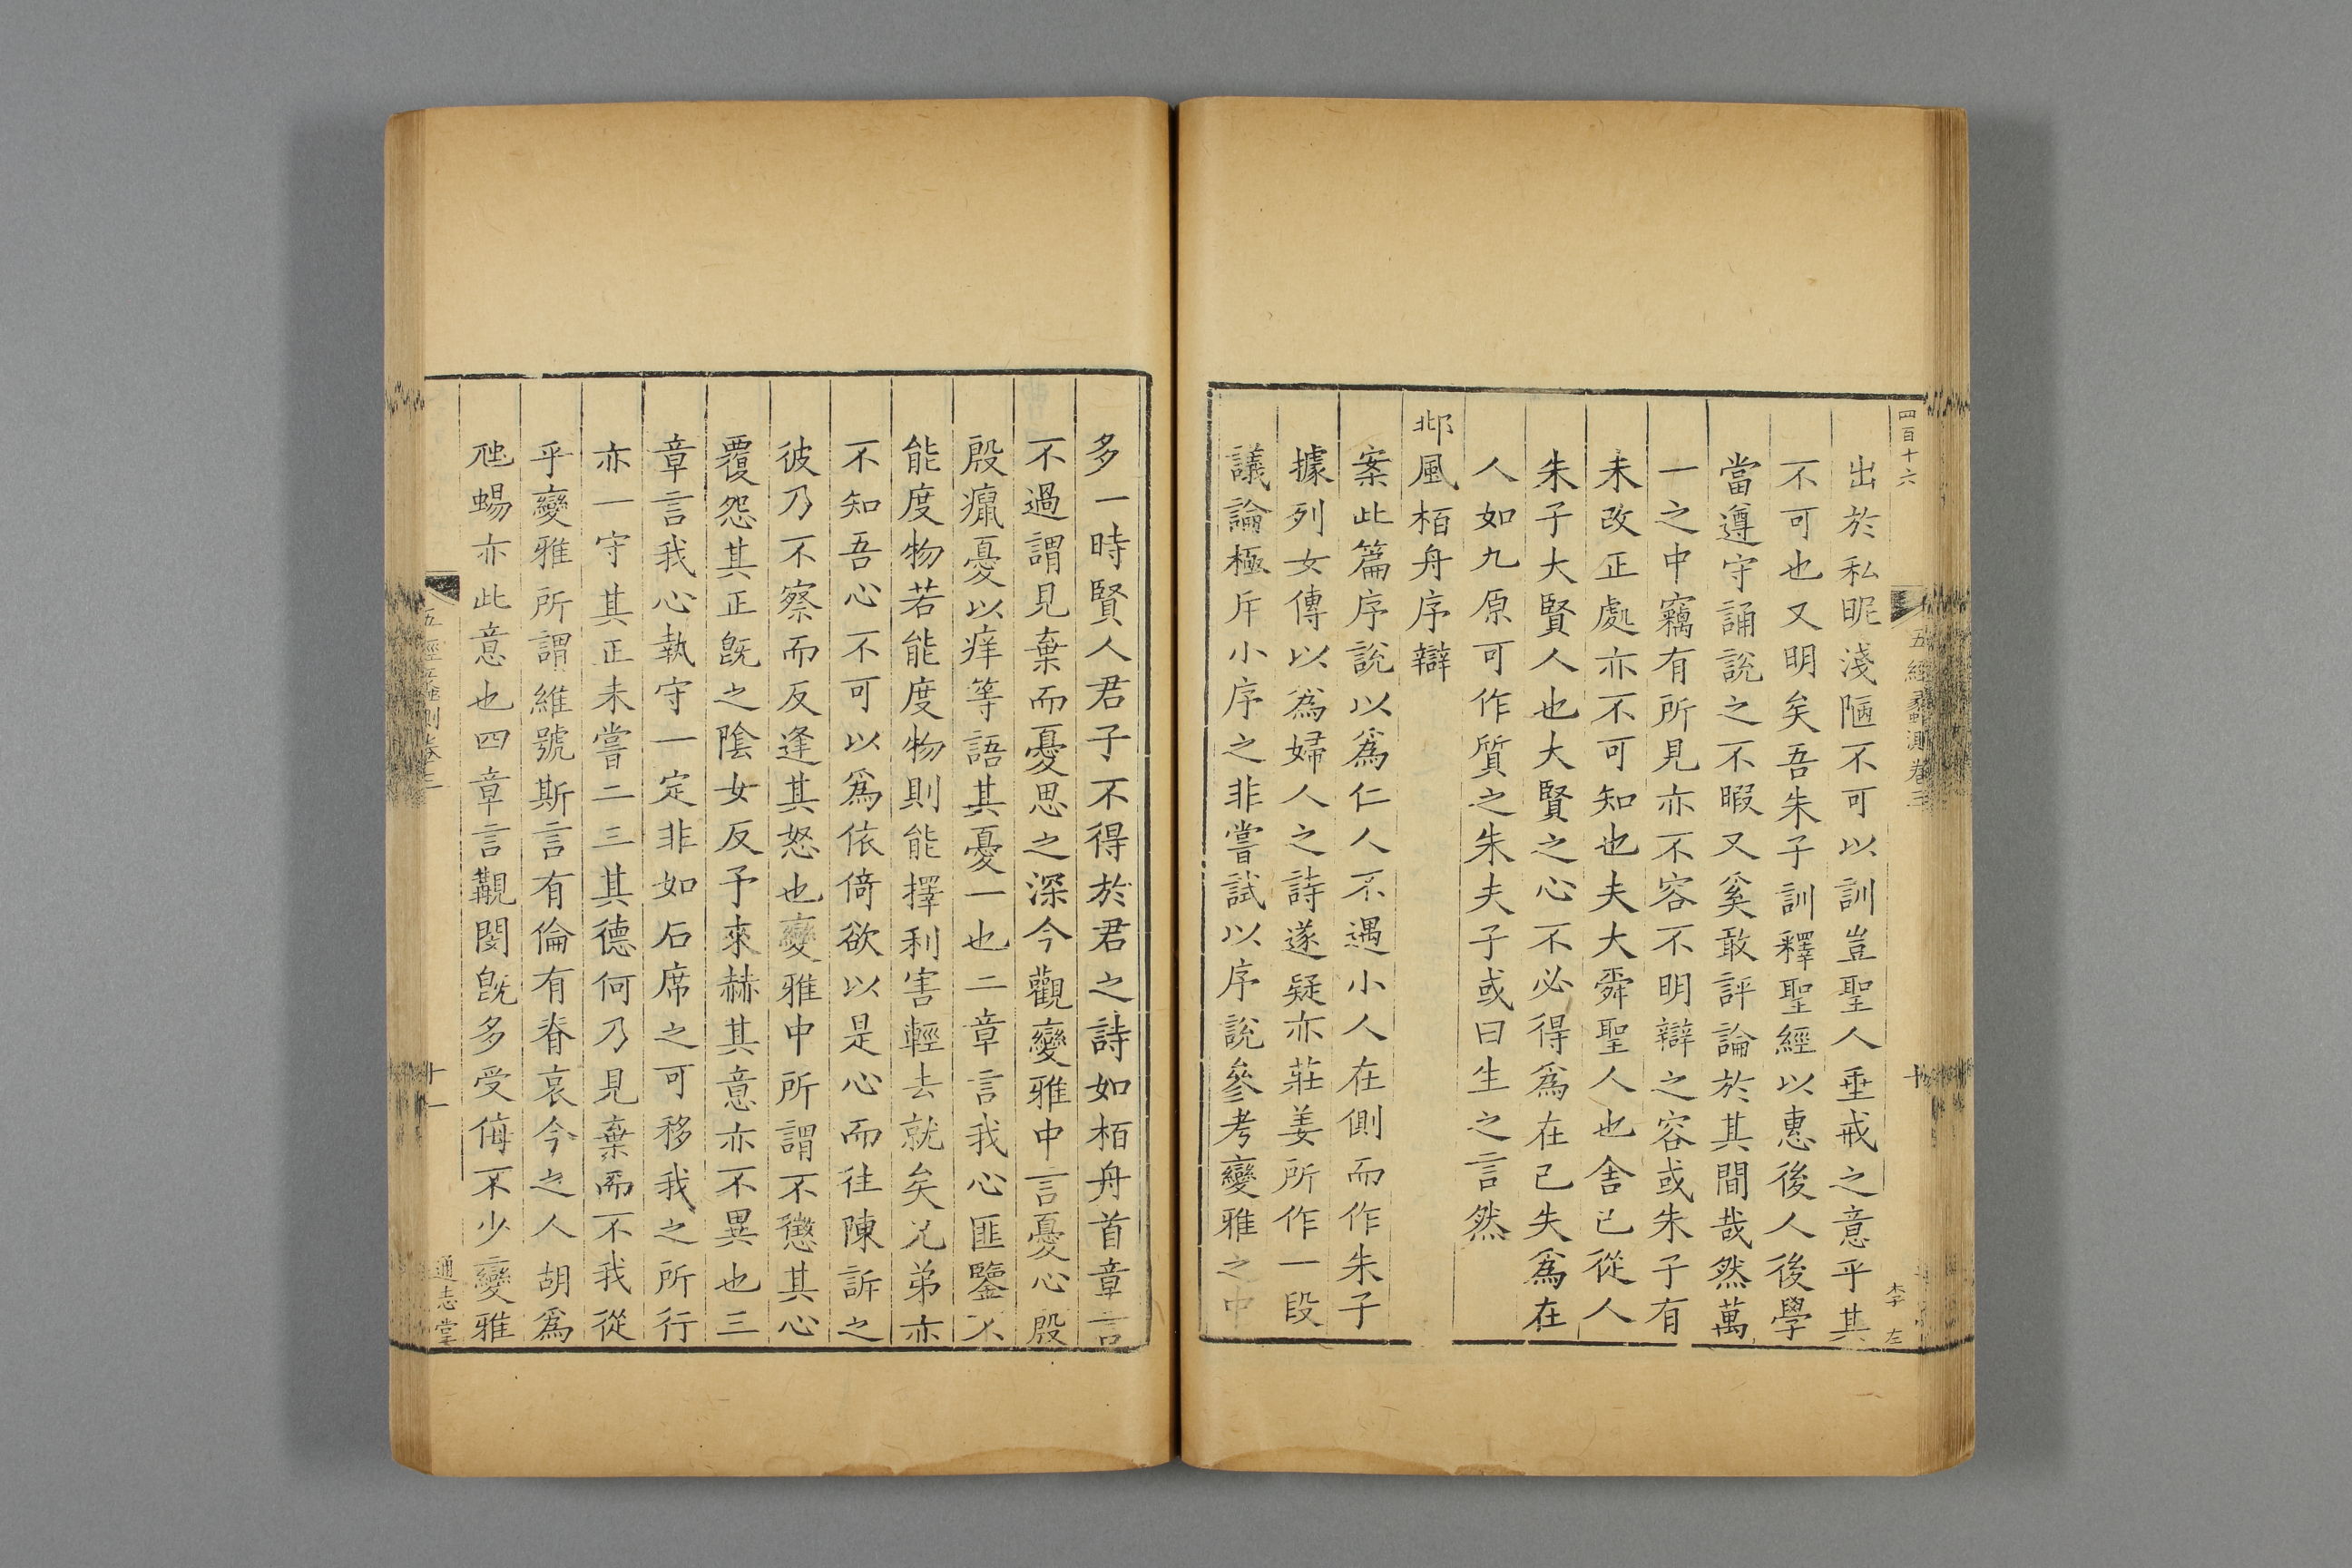 四百十六
五經蠡測卷三
十
李
左
出於私昵淺陋不可以訓豈聖人垂戒之意乎其
不可也又明矣吾朱子訓釋聖經以惠後人後學
當遵守誦說之不暇又奚敢評論於其間哉然萬
一之中竊有所見亦不容不明辯之容或朱子有
未改正處亦不可知也夫大舜聖人也舍已從人
朱子大賢人也大賢之心不必得爲在已失爲在
人如九原可作質之朱夫子或曰生之言然
邶風栢舟序辯
案此篇序說以爲仁人不遇小人在側而作朱子
據列女傳以爲婦人之詩遂疑亦莊姜所作一段
議論極斥小序之非嘗試以序說參考變雅之中
多一時賢人君子不得於君之詩如栢舟首章言
不過謂見棄而憂思之深今觀變雅中言憂心殷
殷瘨憂以痒等語其憂一也二章言我心匪鑒不
能度物若能度物則能擇利害輕去就矣兄弟亦
不知吾心不可以爲依倚欲以是心而往陳訴之
彼乃不察而反逢其怒也變雅中所謂不懲其心
覆怨其正旣之陰女反予來赫其意亦不異也三
章言我心執守一定非如石席之可移我之所行
亦一守其正未嘗二三其德何乃見棄而不我從
乎變雅所謂維號斯言有倫有脊哀今之人胡爲
虺蜴亦此意也四章言覯閔旣多受侮不少變雅
五經蠡測卷三
十一
通志堂